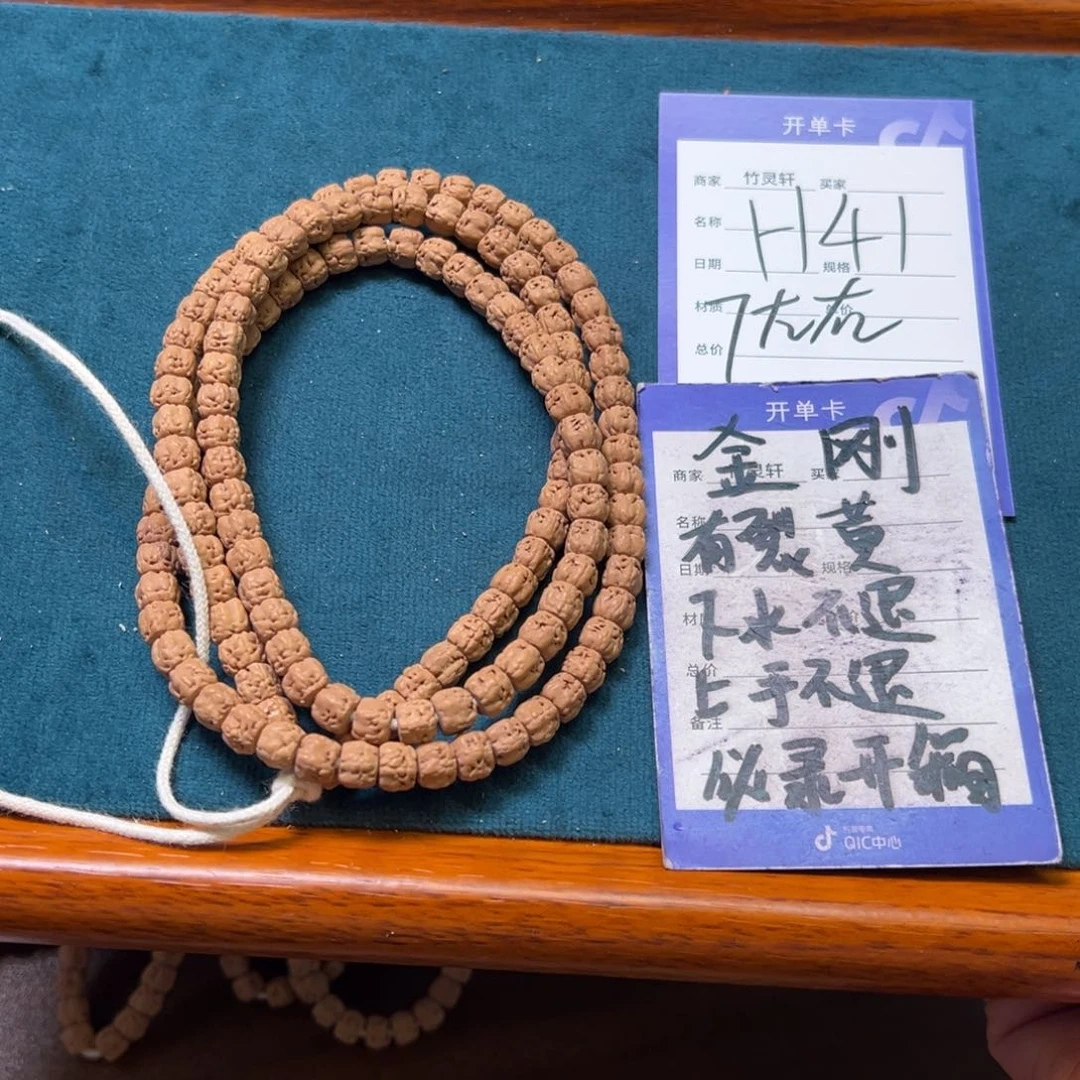 开单卡
商家 竹灵轩 买家
名称
H41
日期 规格
材质 单价
总价
开单卡
金刚
商家 竹灵轩 买家
名称
有裂黄
日期 规格
下水不退
总价
上手不退
备注
必录开箱
QIC中心